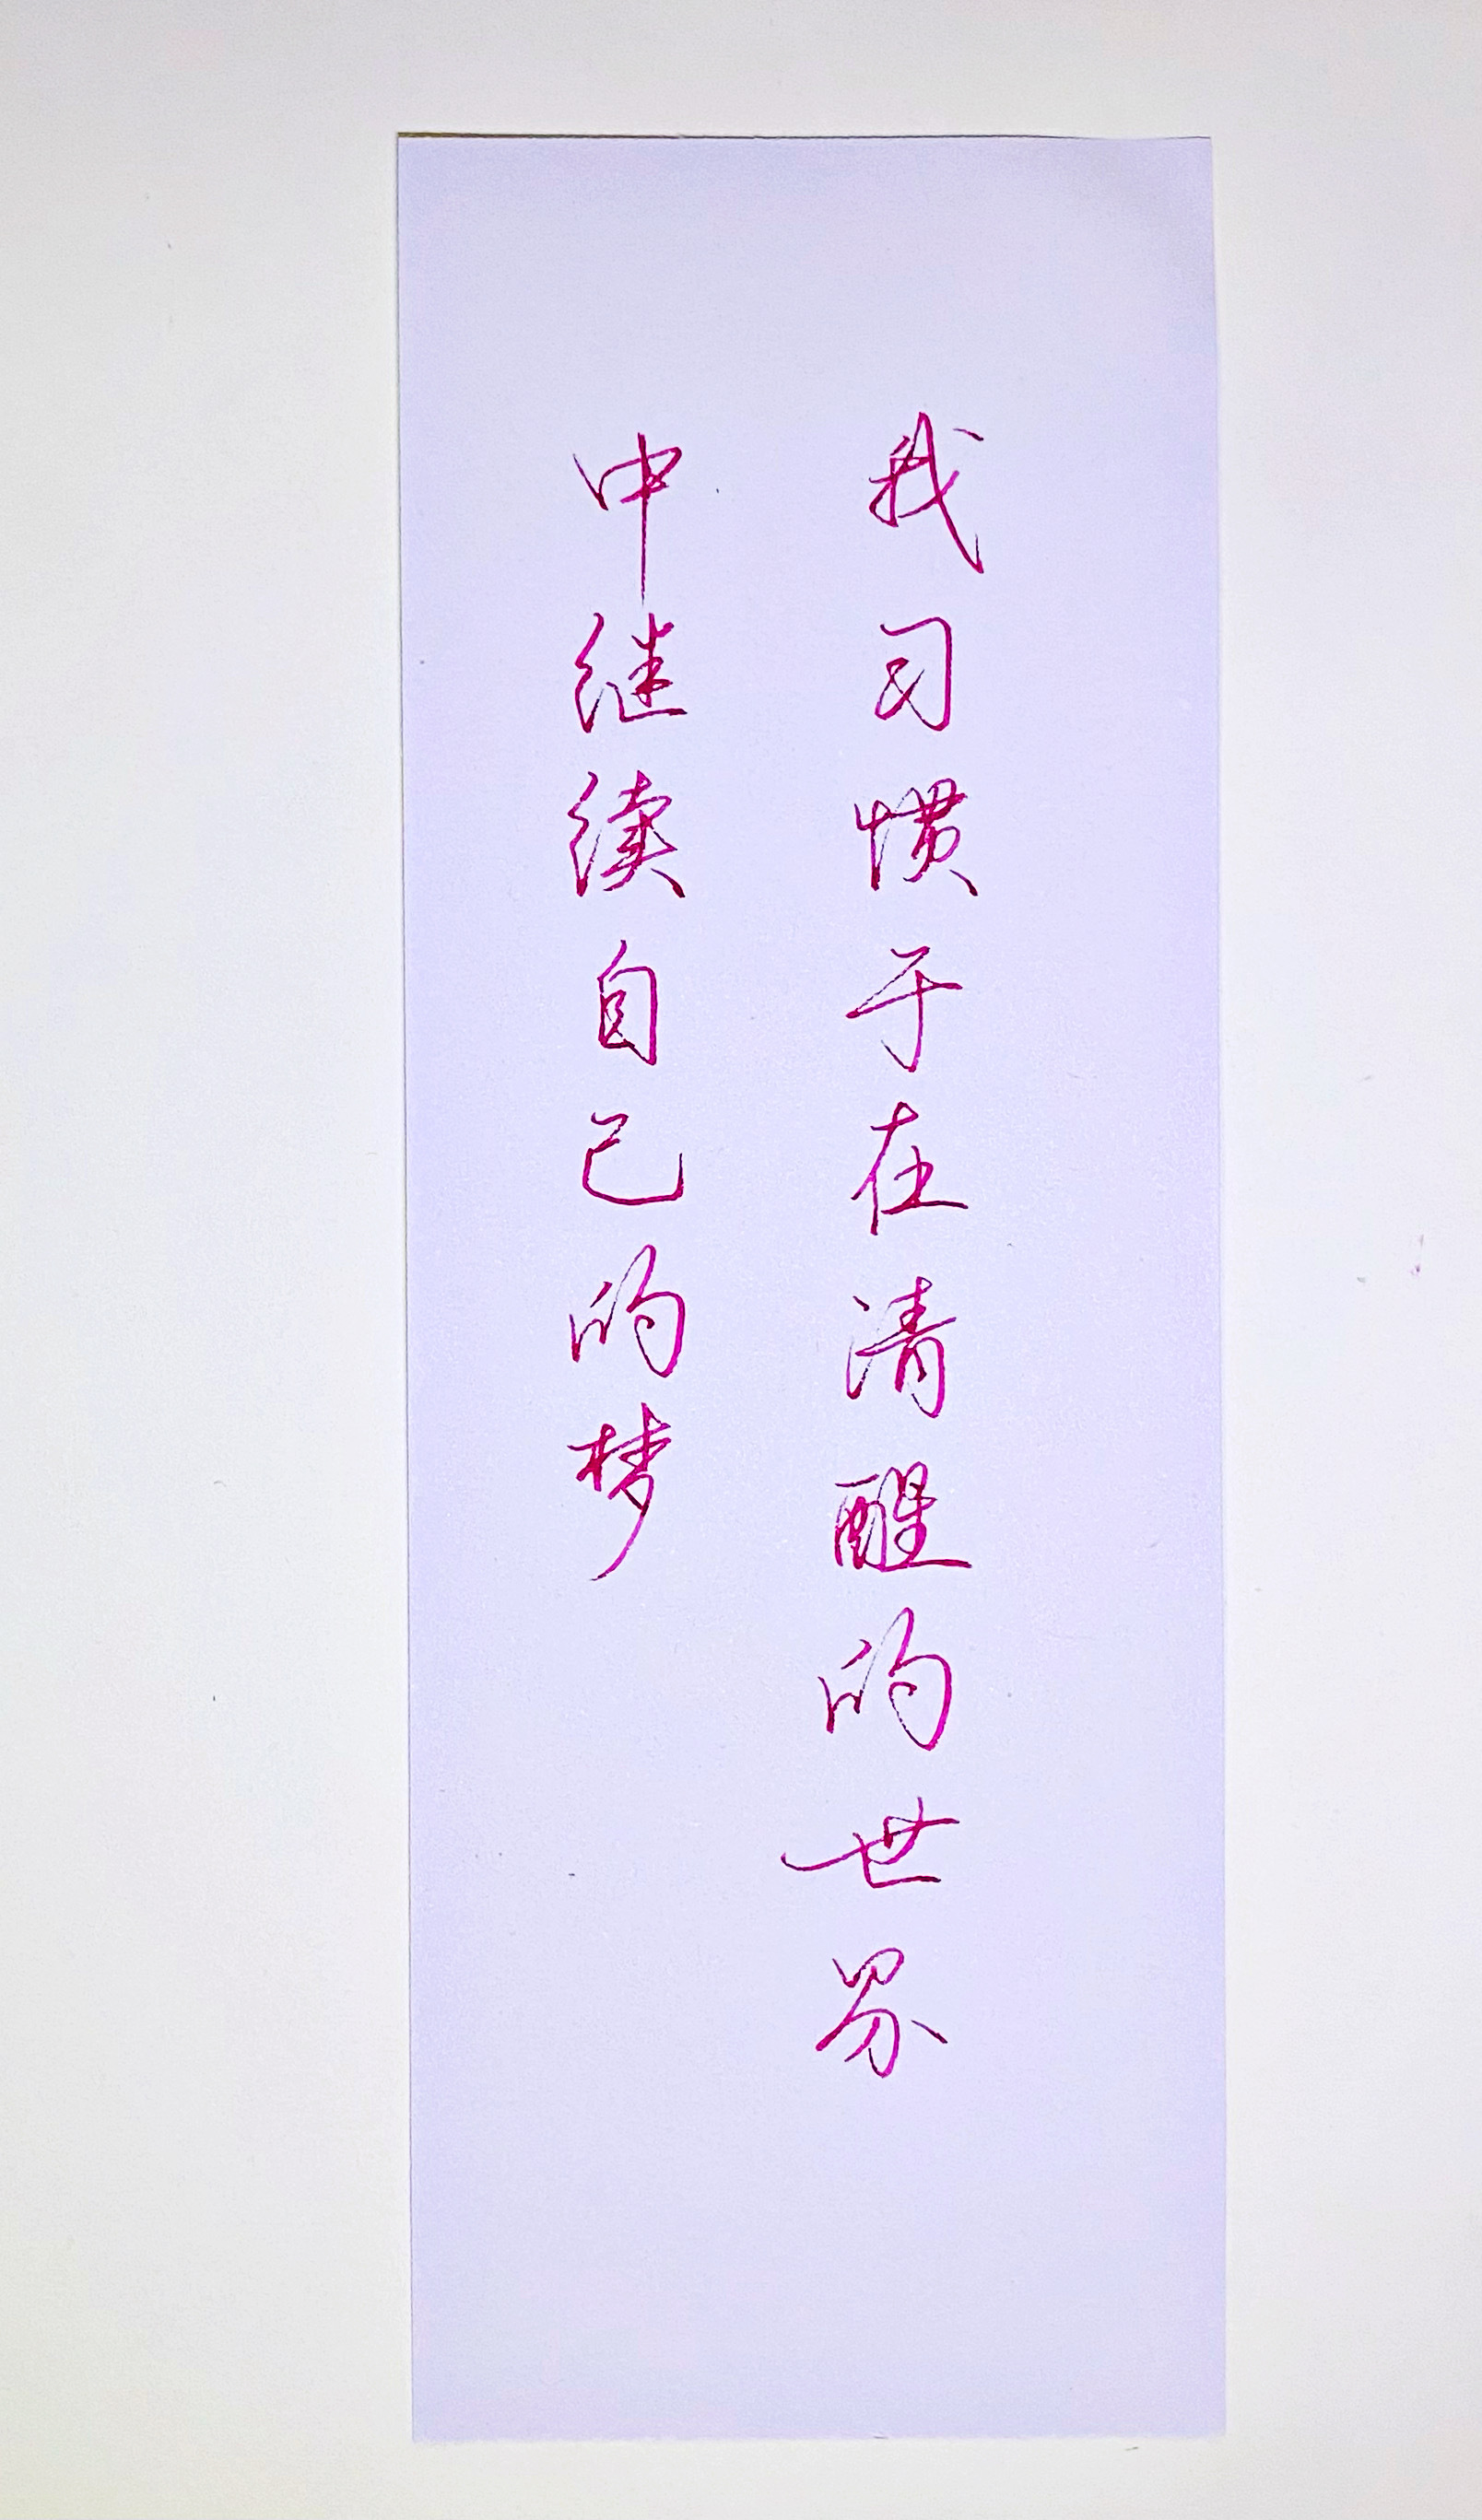 我习惯于在清醒的世界
中继续自己的梦